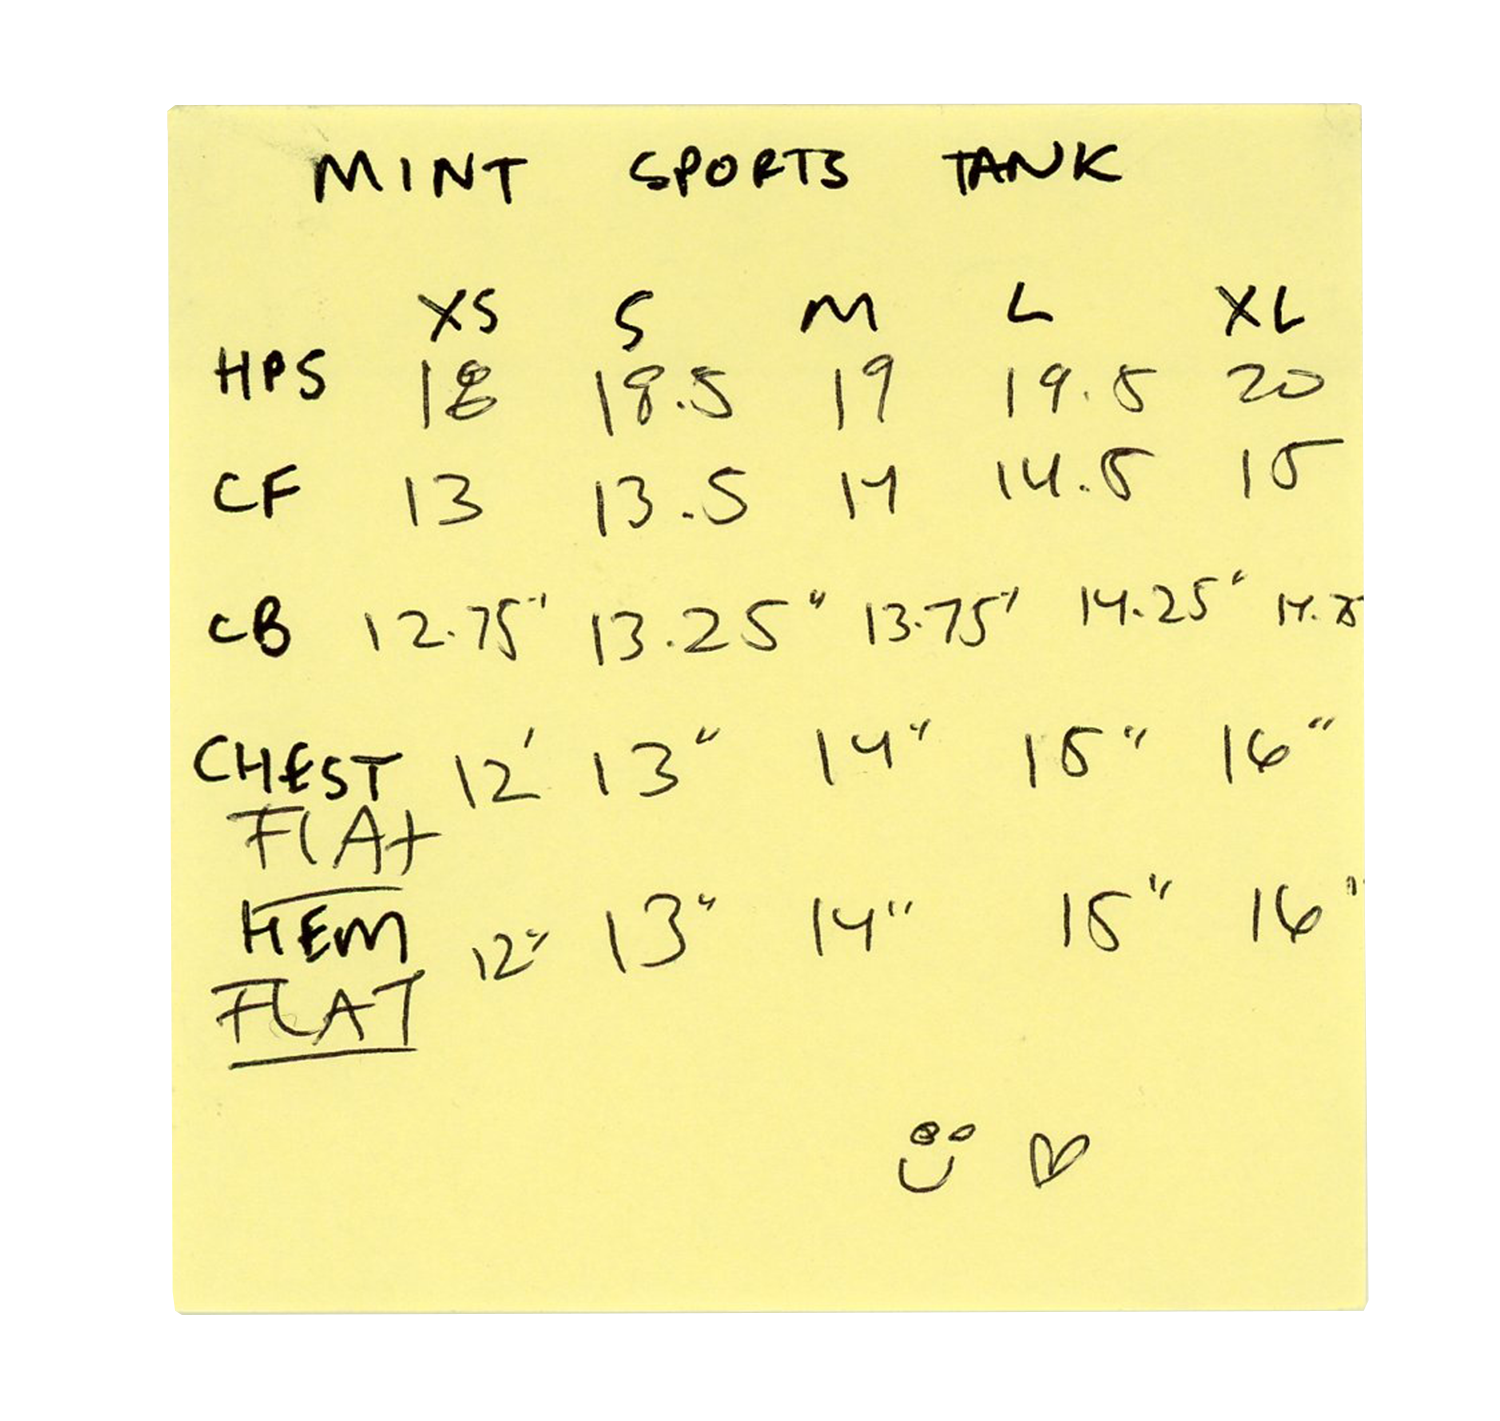 MINT SPORTS TANK
XS S M L XL
HPS 18 18.5 19 19.5 20
CF 13 13.5 14 14.5 15
CB 12.75" 13.25" 13.75" 14.25"
CHEST 12' 13" 14" 15" 16"
FLAT
HEM 12" 13" 14" 15" 16"
FLAT